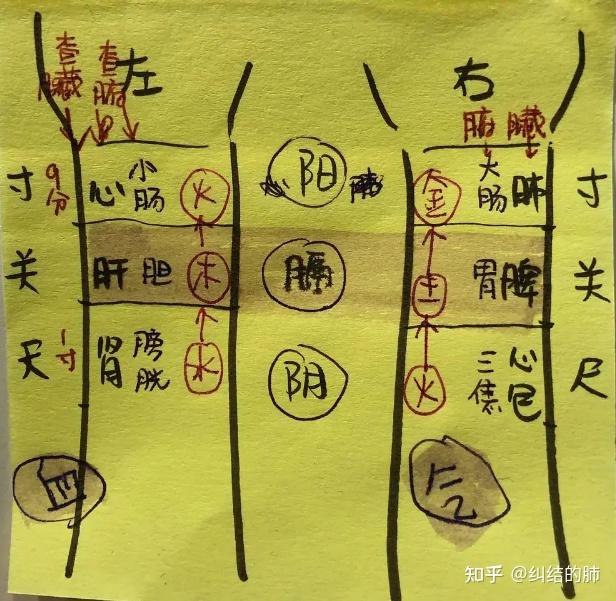 查臟 查腑 左 右
腑 臟
寸 9分 心 小肠 火 阳 金 大肠 肺 寸
关 肝 胆 木 膈 土 胃 脾 关
尺 1寸 肾 膀胱 水 阴 火 三焦 心包 尺
血 气
知乎 @纠结的肺